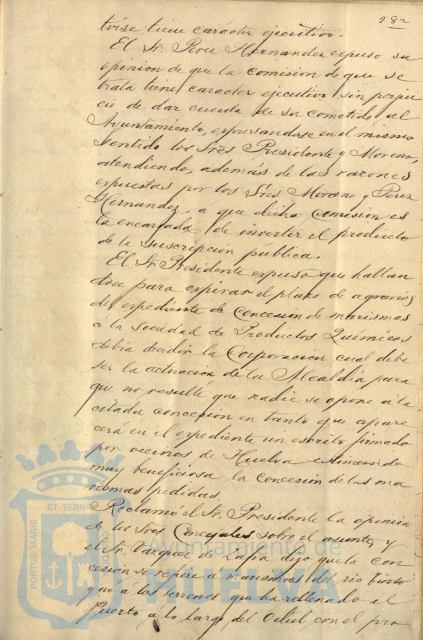 282
trése tiene carácter ejecutivo.
El Sr. Perez Hernandez espuso su
opinion de que la comision de que se
trata tiene caracter ejecutivo sin perjui
cio de dar cuenta de su cometido al
Ayuntamiento, espresandose en el mismo
sentido los Sres Presidente y Moreno,
atendiendo, además de las razones
espuestas por los Sres Moreno y Perez
Hernandez, a que dicha Comision es
la encargada de invertir el producto
de la suscripción pública.
El Sr. Presidente espuso que hallan
dose para espirar el plazo de agravios
del espediente de concesion de marismas
a la Sociedad de Productos Químicos
debia decidir la Corporacion cual debe
ser la actuacion de la Alcaldia para
que no resulte que nadie se opone a la
citada concesion en tanto que apare
cerá en el expediente un escrito firmado
por vecinos de Huelva estimando
muy beneficiosa la concesion de las ma
rismas pedidas.
Reclamó el Sr. Presidente la opinion
de los Sres Concejales sobre el asunto, y
el Sr. Vazquez dijo que la con
cesion se refiere a marismas del rio
que a los terrenos que ha rellenado el
Puerto a lo largo del Odiel con el pro
PORTUS MARIS ET TERRAE CUSTODIA
Ayuntamiento de
HUELVA